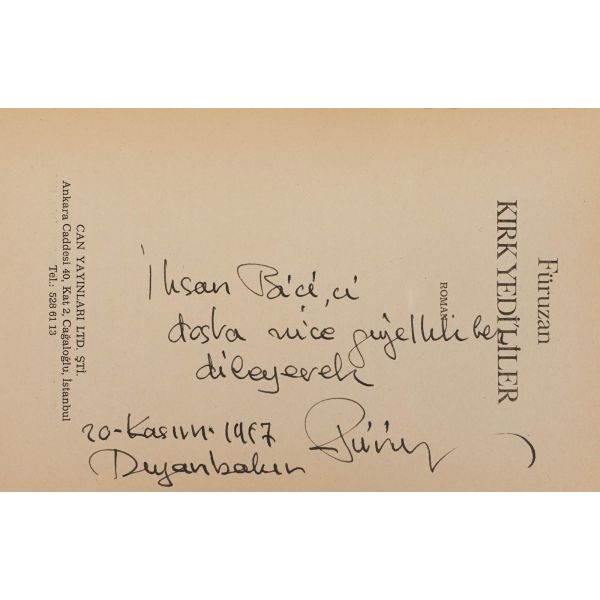 Füruzan
KIRK YEDİ'LİLER
ROMAN
CAN YAYINLARI LTD. ŞTİ.
Ankara Caddesi 40, Kat 2, Cağaloğlu, İstanbul
Tel.: 528 61 13
İhsan
dosta nice güzellikler
dileyerek
20-Kasım-1987
Diyarbakır